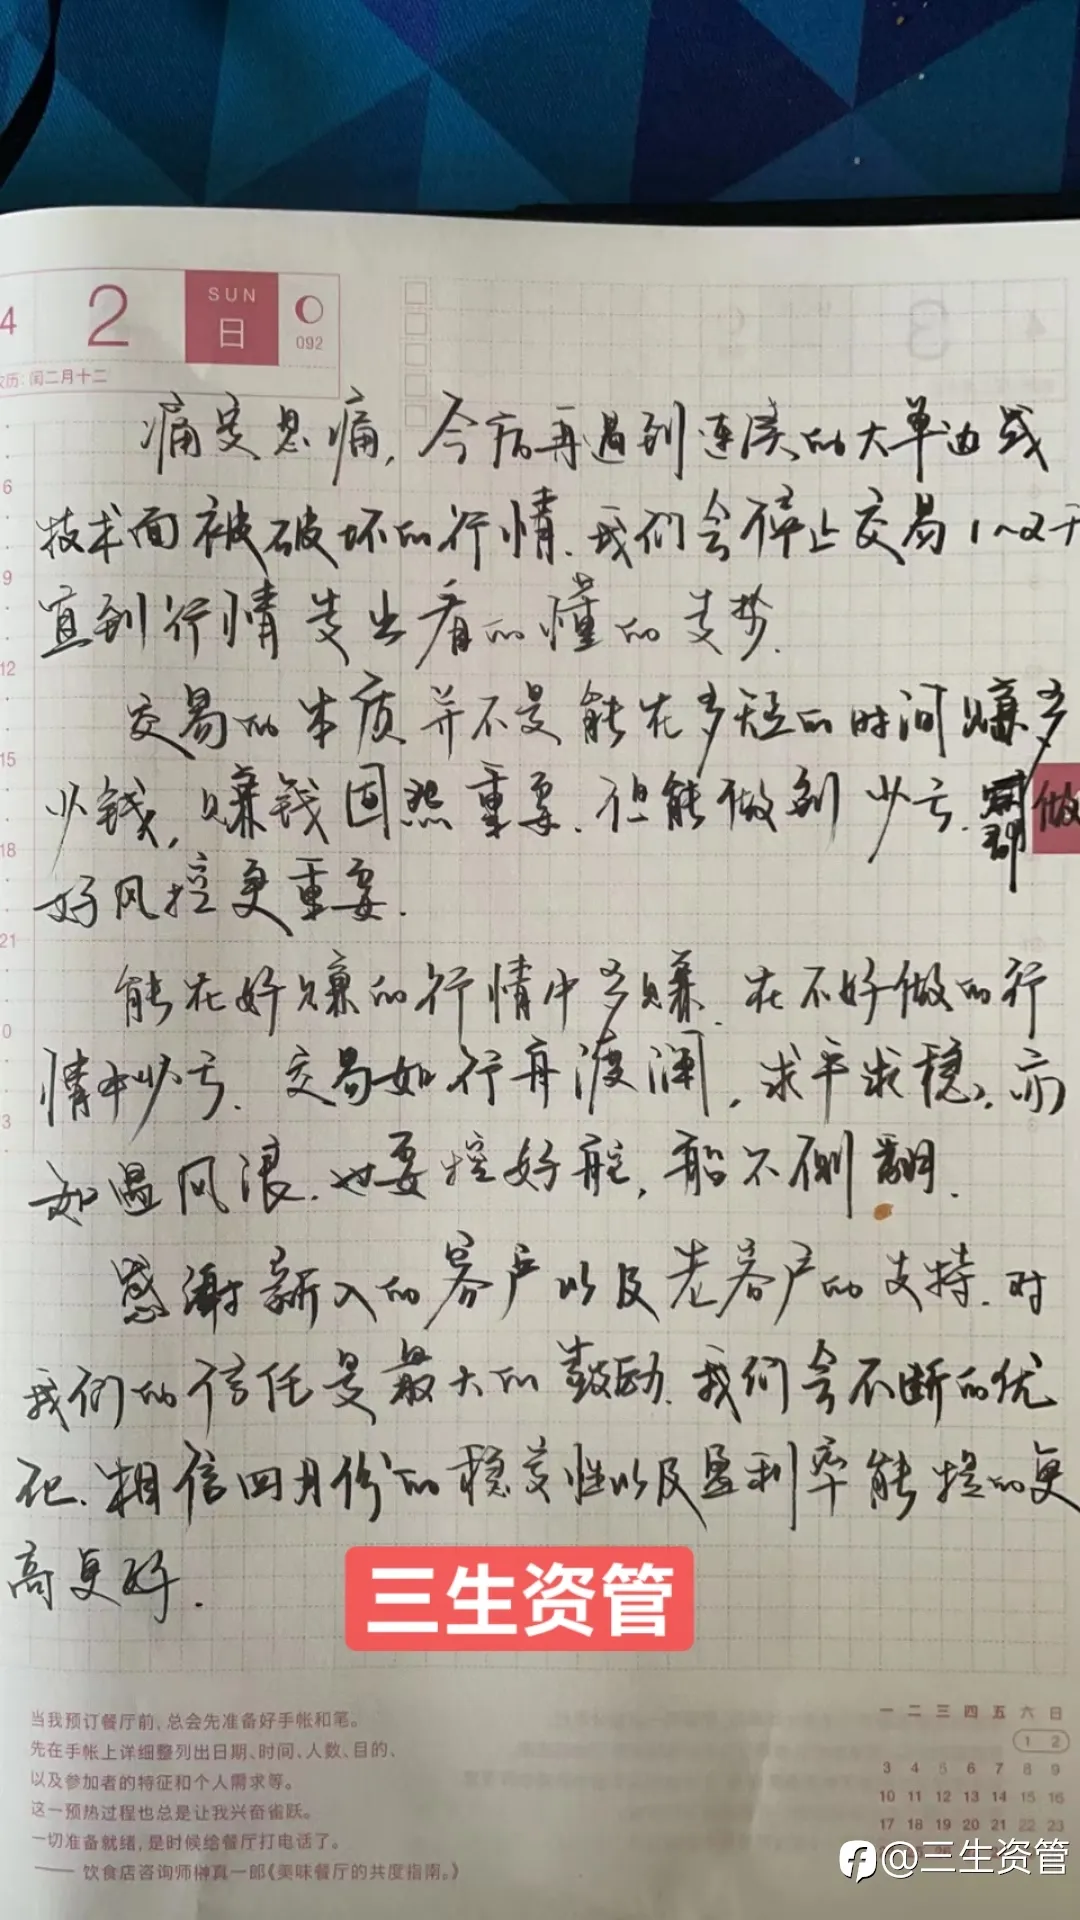 4 2 SUN 日 092
农历:闰二月十二
痛定思痛,今后再遇到连续的大单边或
技术面被破坏的行情.我们会停止交易1~2天
直到行情走出看的懂的走势.
交易的本质并不是能在多短的时间赚多
少钱,赚钱固然重要.但能做到少亏. 做
好风控更重要.
能在好赚的行情中多赚.在不好做的行
情中少亏.交易如行舟渡澜,求平求稳,亦
如遇风浪.也要控好舵,船不侧翻.
感谢新入的客户以及老客户的支持.对
我们的信任是最大的鼓励.我们会不断的优
化.相信四月份的稳定性以及盈利率能提的更
高更好.
三生资管
当我预订餐厅前,总会先准备好手帐和笔。
先在手帐上详细整列出日期、时间、人数、目的、
以及参加者的特征和个人需求等。
这一预热过程也总是让我兴奋雀跃。
一切准备就绪,是时候给餐厅打电话了。
—— 饮食店咨询师榊真一郎《美味餐厅的共度指南。》
一 二 三 四 五 六 日
1 2
3 4 5 6 7 8 9
10 11 12 13 14 15 16
17 18 19 20 21 22 23
@三生资管
6
9
12
15
18
21
0
3